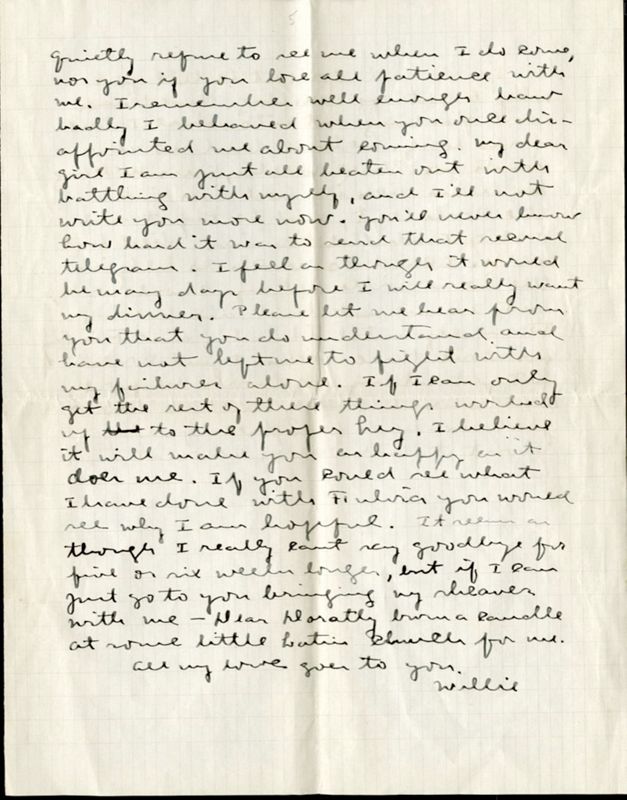 5
quietly refuse to see me when I do come,
nor you if you lose all patience with
me. I remember well enough how
badly I behaved when you once dis-
appointed me about coming. My dear
girl I am just all beaten out with
battling with myself, and I'll not
write you more now. You'll never know
how hard it was to send that second
telegram. I feel as though it would
be many days before I will really want
my dinner. Please let me hear from
you that you do understand and
have not left me to fight with
my failures alone. If I can only
get the rest of these things worked
up to the proper key. I believe
it will make you as happy as it
does me. If you could see what
I have done with Fulvia you would
see why I am hopeful. It seems as
though I really can't say goodbye for
five or six weeks longer, but if I can
just go to you bringing my sheaves
with me — Dear Dorothy burn a candle
at some little Latin church for me.
All my love goes to you.
Willie